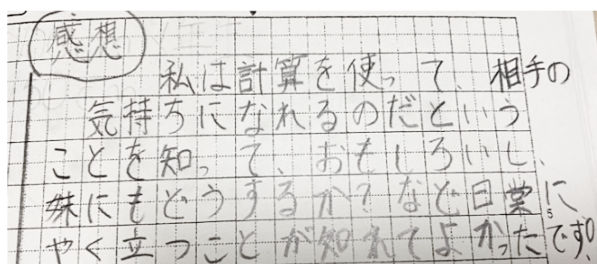 感想
私は計算を使って、相手の
気持ちになれるのだという
ことを知って、おもしろいし、
妹にもどうするか?など日常に
やく立つことが知れてよかったです。